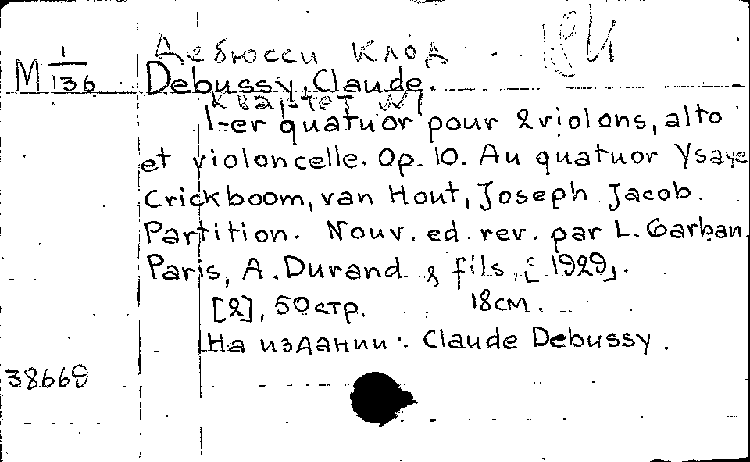 Дебюсси Клод
М 1/136 Debussy, Claude.
Квартет №1
1-er quatuor pour 2 violons, alto
et violoncelle. Op. 10. Au quatuor Ysaye
Crickboom, van Hout, Joseph Jacob.
Partition. Nouv. ed. rev. par L. Garban.
Paris, A. Durand & fils, [1929].
[2], 50 стр. 18 см.
На издании: Claude Debussy.
38669